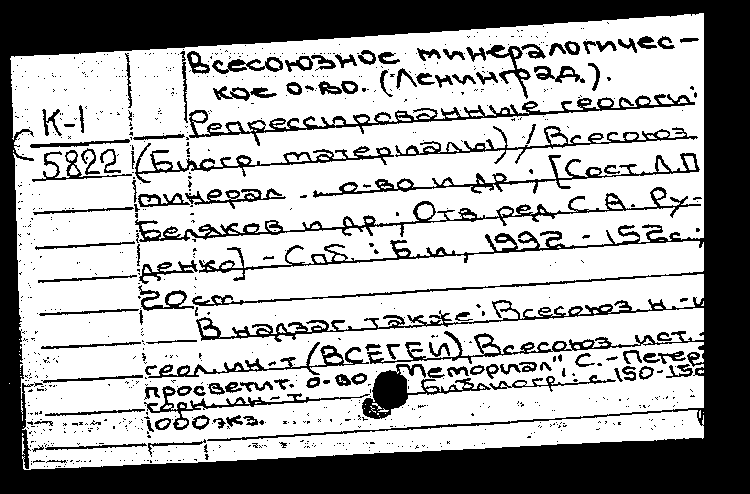 Всесоюзное минералогичес-
кое о-во. (Ленинград.).
К-1
Репрессированные геологи:
5822
(Биогр. материалы) / Всесоюз.
минерал. о-во и др.; [Сост. Л.П
Беляков и др.; Отв. ред. С.А. Ру-
денко] - Спб. : Б.и., 1992 - 152с.;
20 см.
В надзаг. также: Всесоюз. н.-и
геол. ин-т (ВСЕГЕИ), Всесоюз. ист.-
просветит. о-во "Мемориал", С.-Петерб
горн. ин-т. Библиогр.: с. 150-150
1000 экз.